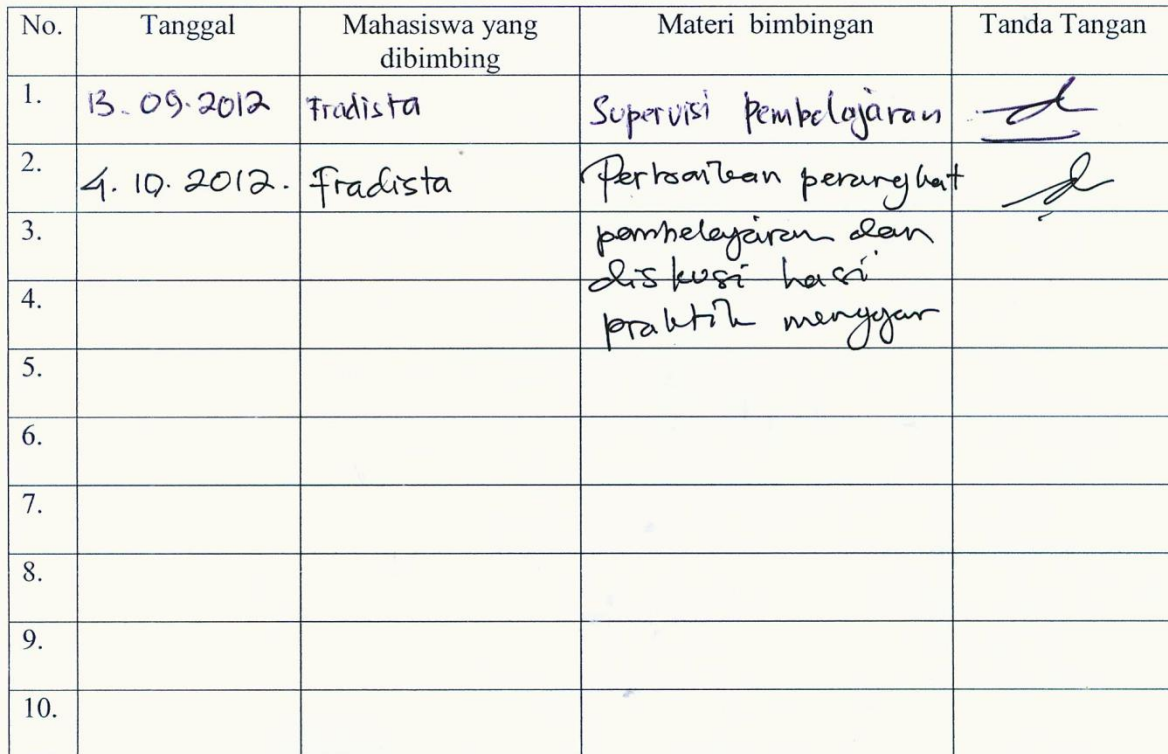 No. Tanggal Mahasiswa yang dibimbing Materi bimbingan Tanda Tangan
1. 13.09.2012 Fradista Supervisi Pembelajaran
2. 4.10.2012. Fradista Perbaikan perangkat
3. pembelajaran dan
diskusi hasi
4. praktik mengajar
5.
6.
7.
8.
9.
10.